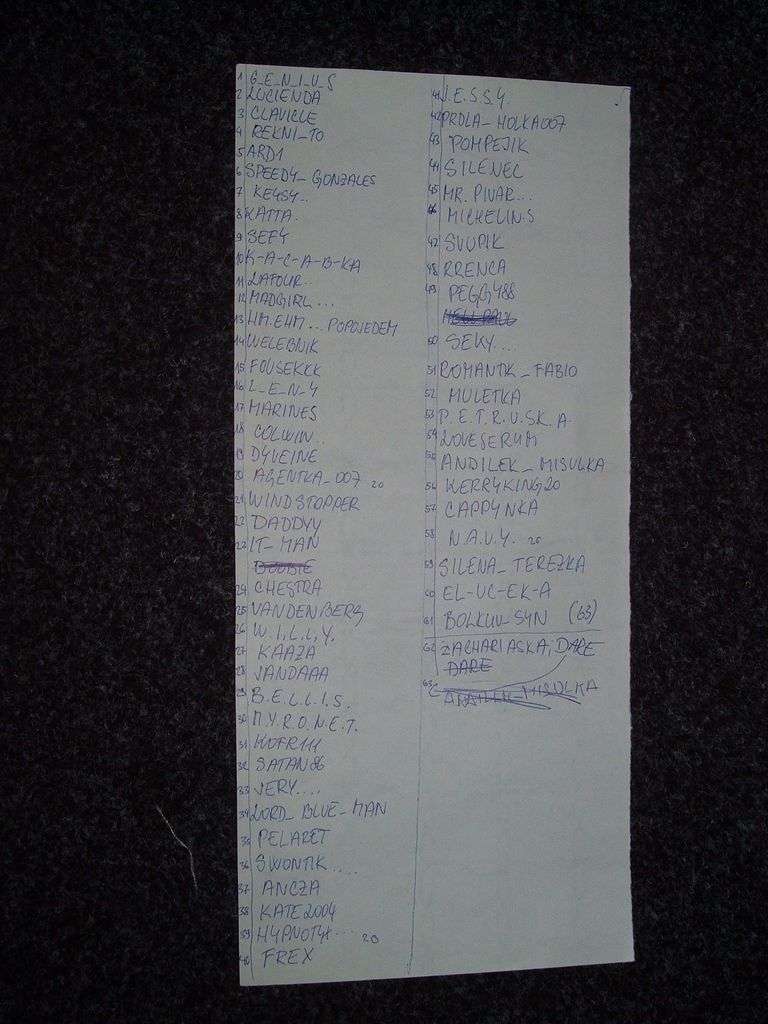 1 G_E_N_I_U_S
2 LUCIENDA
3 CLAVICLE
4 REKNI_TO
5 ARD1
6 SPEEDY_ GONZALES
7 KEYSY..
8 KATTA.
9 SEFY
10 K-A-C-A-B-KA
11 LATOUR..
12 MADGIRL ...
13 HM.EHM... POPOJEDEM
14 WELEBNIK
15 FOUSEKKK
16 L_E_N_Y
17 MARINES
18 COLWIN..
19 DYVEINE
20 AGENTKA_007 20
21 WINDSTOPPER
22 DADDYY
23 IT-MAN
DOUBIE
24 CHESTRA
25 VANDENBERG
26 W.I.L.L.Y.
27 KAAZA
28 JANDAAA
29 B.E.L.L.I.S.
30 M.Y.R.O.N.E.T.
31 KOFR111
32 SATAN86
33 VERY....
34 LORD_ BLUE_MAN
35 PELARET
36 SWONTIK....
37 ANCZA
38 KATE2004
39 HYPNOTYX... 20
40 FREX
41 J.E.S.S.Y.
42 PRDLA_HOLKA007
43 POMPEJIK
44 SILENEC
45 MR. PIVAR...
46 MICHELIN.S
47 SVUPIK
48 RRENCA
49 PEGGY88
50 SEKY....
51 ROMANTIK_FABIO
52 MULETKA
53 P.E.T.R.U.SK.A.
54 LOVESERUM
55 ANDILEK_MISULKA
56 KERRYKING20
57 CAPPYNKA
58 N.A.V.Y. 20
59 SILENA_TEREZKA
60 EL-UC-EK-A
61 BOLKUV_SYN (63)
62 ZACHARIASKA, DARE
DARE
63 MISULKA